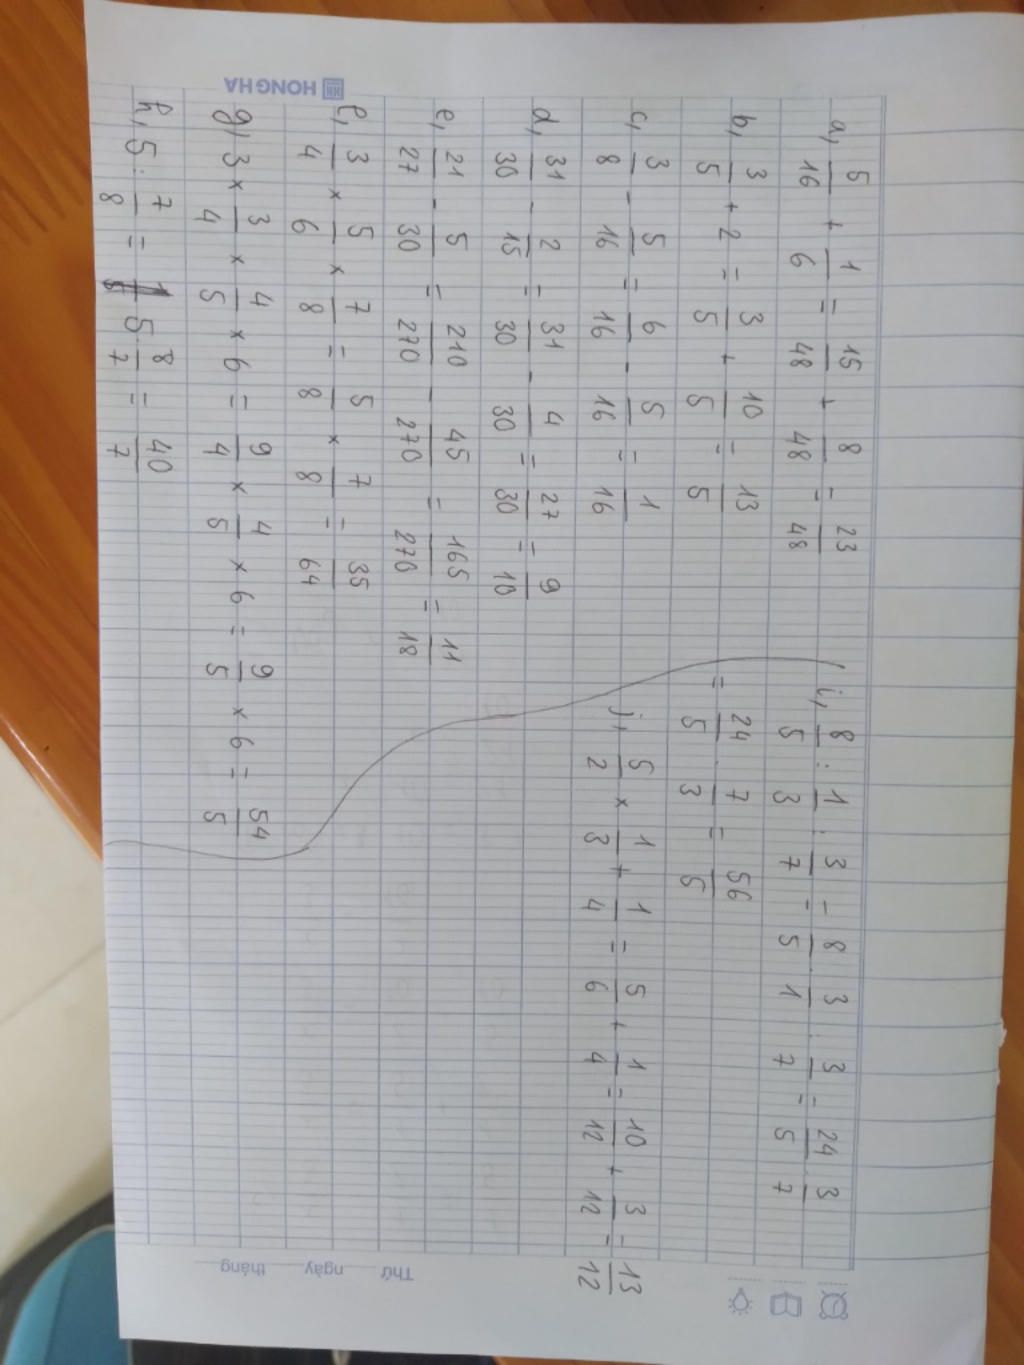 a, 5/16 + 1/6 = 15/48 + 8/48 = 23/48
b, 3/5 + 2 = 3/5 + 10/5 = 13/5
c, 3/8 - 5/16 = 6/16 - 5/16 = 1/16
d, 31/30 - 2/15 = 31/30 - 4/30 = 27/30 = 9/10
e, 21/27 - 5/30 = 210/270 - 45/270 = 165/270 = 11/18
f, 3/4 × 5/6 × 7/8 = 5/8 × 7/8 = 35/64
g, 3 × 3/4 × 4/5 × 6 = 9/4 × 4/5 × 6 = 9/5 × 6 = 54/5
h, 5 : 7/8 = 5 . 8/7 = 40/7
i, 8/5 : 1/3 : 3/7 = 8/5 . 3/1 : 3/7 = 24/5 : 3/7
= 24/5 . 7/3 = 56/5
j, 5/2 × 1/3 + 1/4 = 5/6 + 1/4 = 10/12 + 3/12 = 13/12
HH HONG HA
Thứ ngày tháng